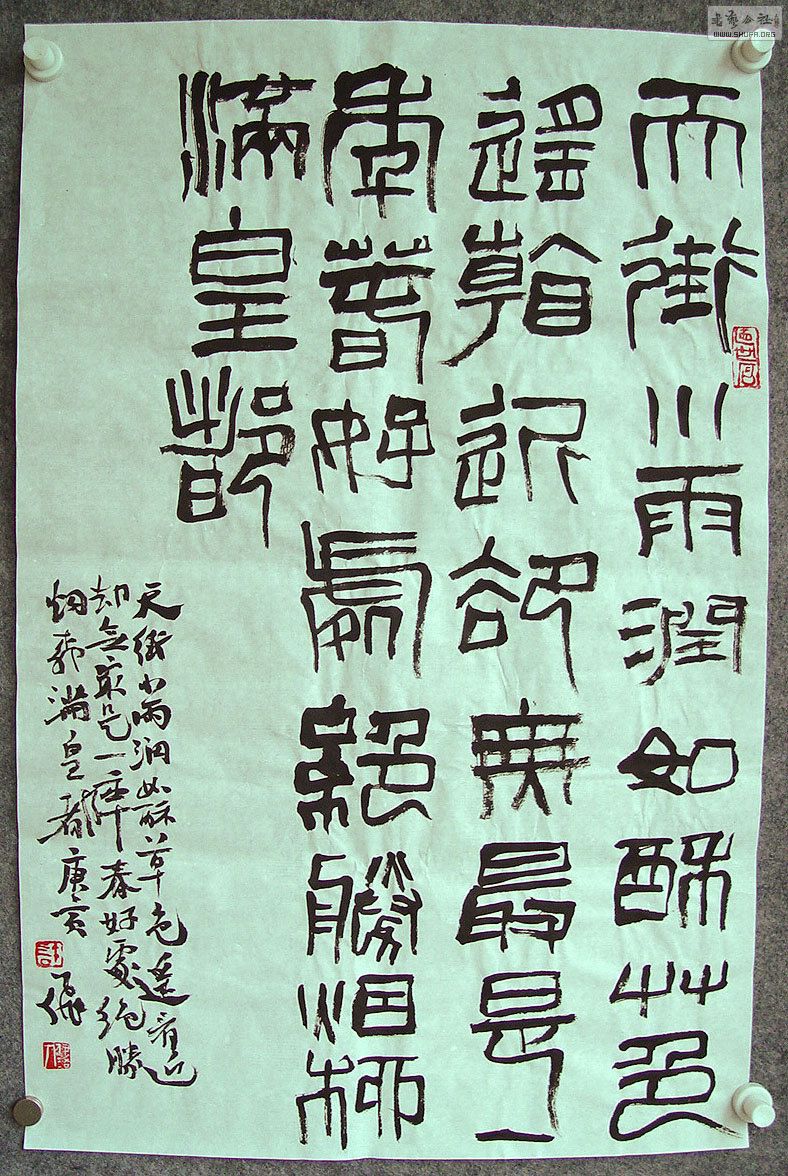 书艺公社
WWW.SHUFA.ORG
天街小雨潤如酥艸色
遙看近卻無最是一
年春好處絕勝煙柳
滿皇都
天街小雨润如酥草色遥看近
却無最是一年春好處绝勝
烟柳满皇都庚寅